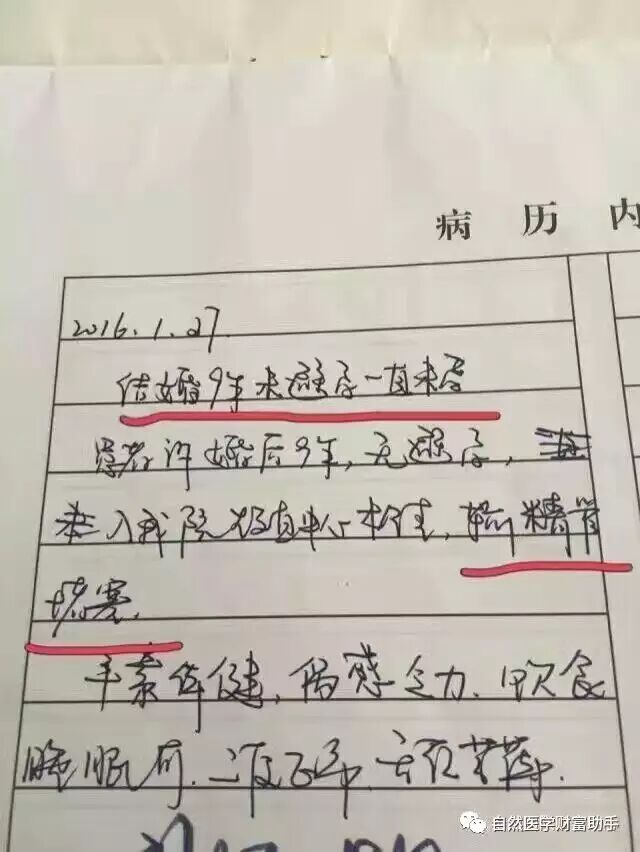 病历内
2016.1.27
结婚9年未避孕一直未孕
患者诉婚后9年,无避孕,
来入我院生殖中心检查,输精管
堵塞.
平素体健,偶感乏力.饮食
睡眠可.二便正常
自然医学财富助手